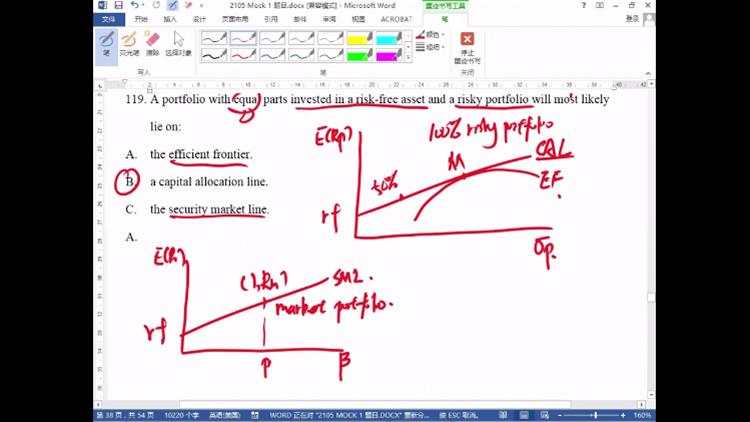 2105 Mock 1 题目.docx [兼容模式] - Microsoft Word
墨迹书写工具
文件 开始 插入 设计 页面布局 引用 邮件 审阅 视图 ACROBAT 笔 登录
笔 荧光笔 橡皮擦 选择对象
颜色
粗细
停止
墨迹书写
写入 笔 关闭
119. A portfolio with equal parts invested in a risk-free asset and a risky portfolio will most likely
lie on:
A. the efficient frontier.
B. a capital allocation line.
C. the security market line.
A.
E(Rp)
100% risky portfolio
M
CAL
50%
EF
rf
σp.
E(Ri)
SML.
market portfolio.
rf
β
第 38 页，共 54 页 10220 个字 英语(美国) WORD 正在对 "2105 MOCK 1 题目.DOCX" 重新分... 按 ESC 取消。 160%